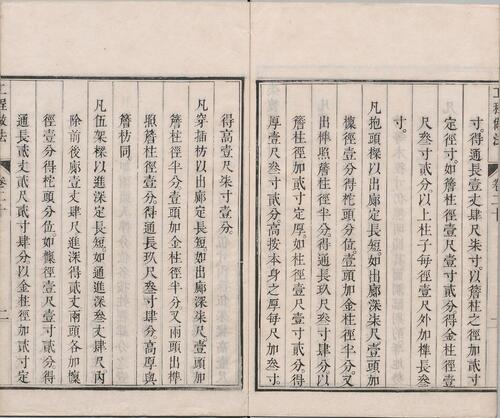 寸得通長壹丈肆尺柒寸以簷柱徑加貳寸
定徑寸如簷柱徑壹尺貳寸得金柱徑壹
尺肆寸貳分以上柱子每徑壹尺外加榫長叁
寸
凡抱頭樑以出廊定長短如出廊深柒尺壹頭加
檁徑壹分得柁頭分位壹頭加金柱徑半分又
出榫照簷柱徑半分得通長玖尺叁寸肆分以
簷柱徑加貳寸定厚如柱徑壹尺貳寸得
厚壹尺叁寸貳分高按本身之厚每尺加叁寸
得高壹尺柒寸壹分
凡穿插枋以出廊定長短如出廊深柒尺壹頭加
簷柱徑半分壹頭加金柱徑半分又兩頭出榫
照簷柱徑壹分得通長玖尺叁寸肆分高厚與
簷枋同
凡伍架樑以進深定長短如通進深叁丈肆尺內
除前後廊壹丈肆尺進深得貳丈兩頭各加檁
徑壹分得柁頭分位如檁徑壹尺壹寸貳分得
通長貳丈貳尺貳寸肆分以金柱徑加貳寸定
工程做法
卷二十